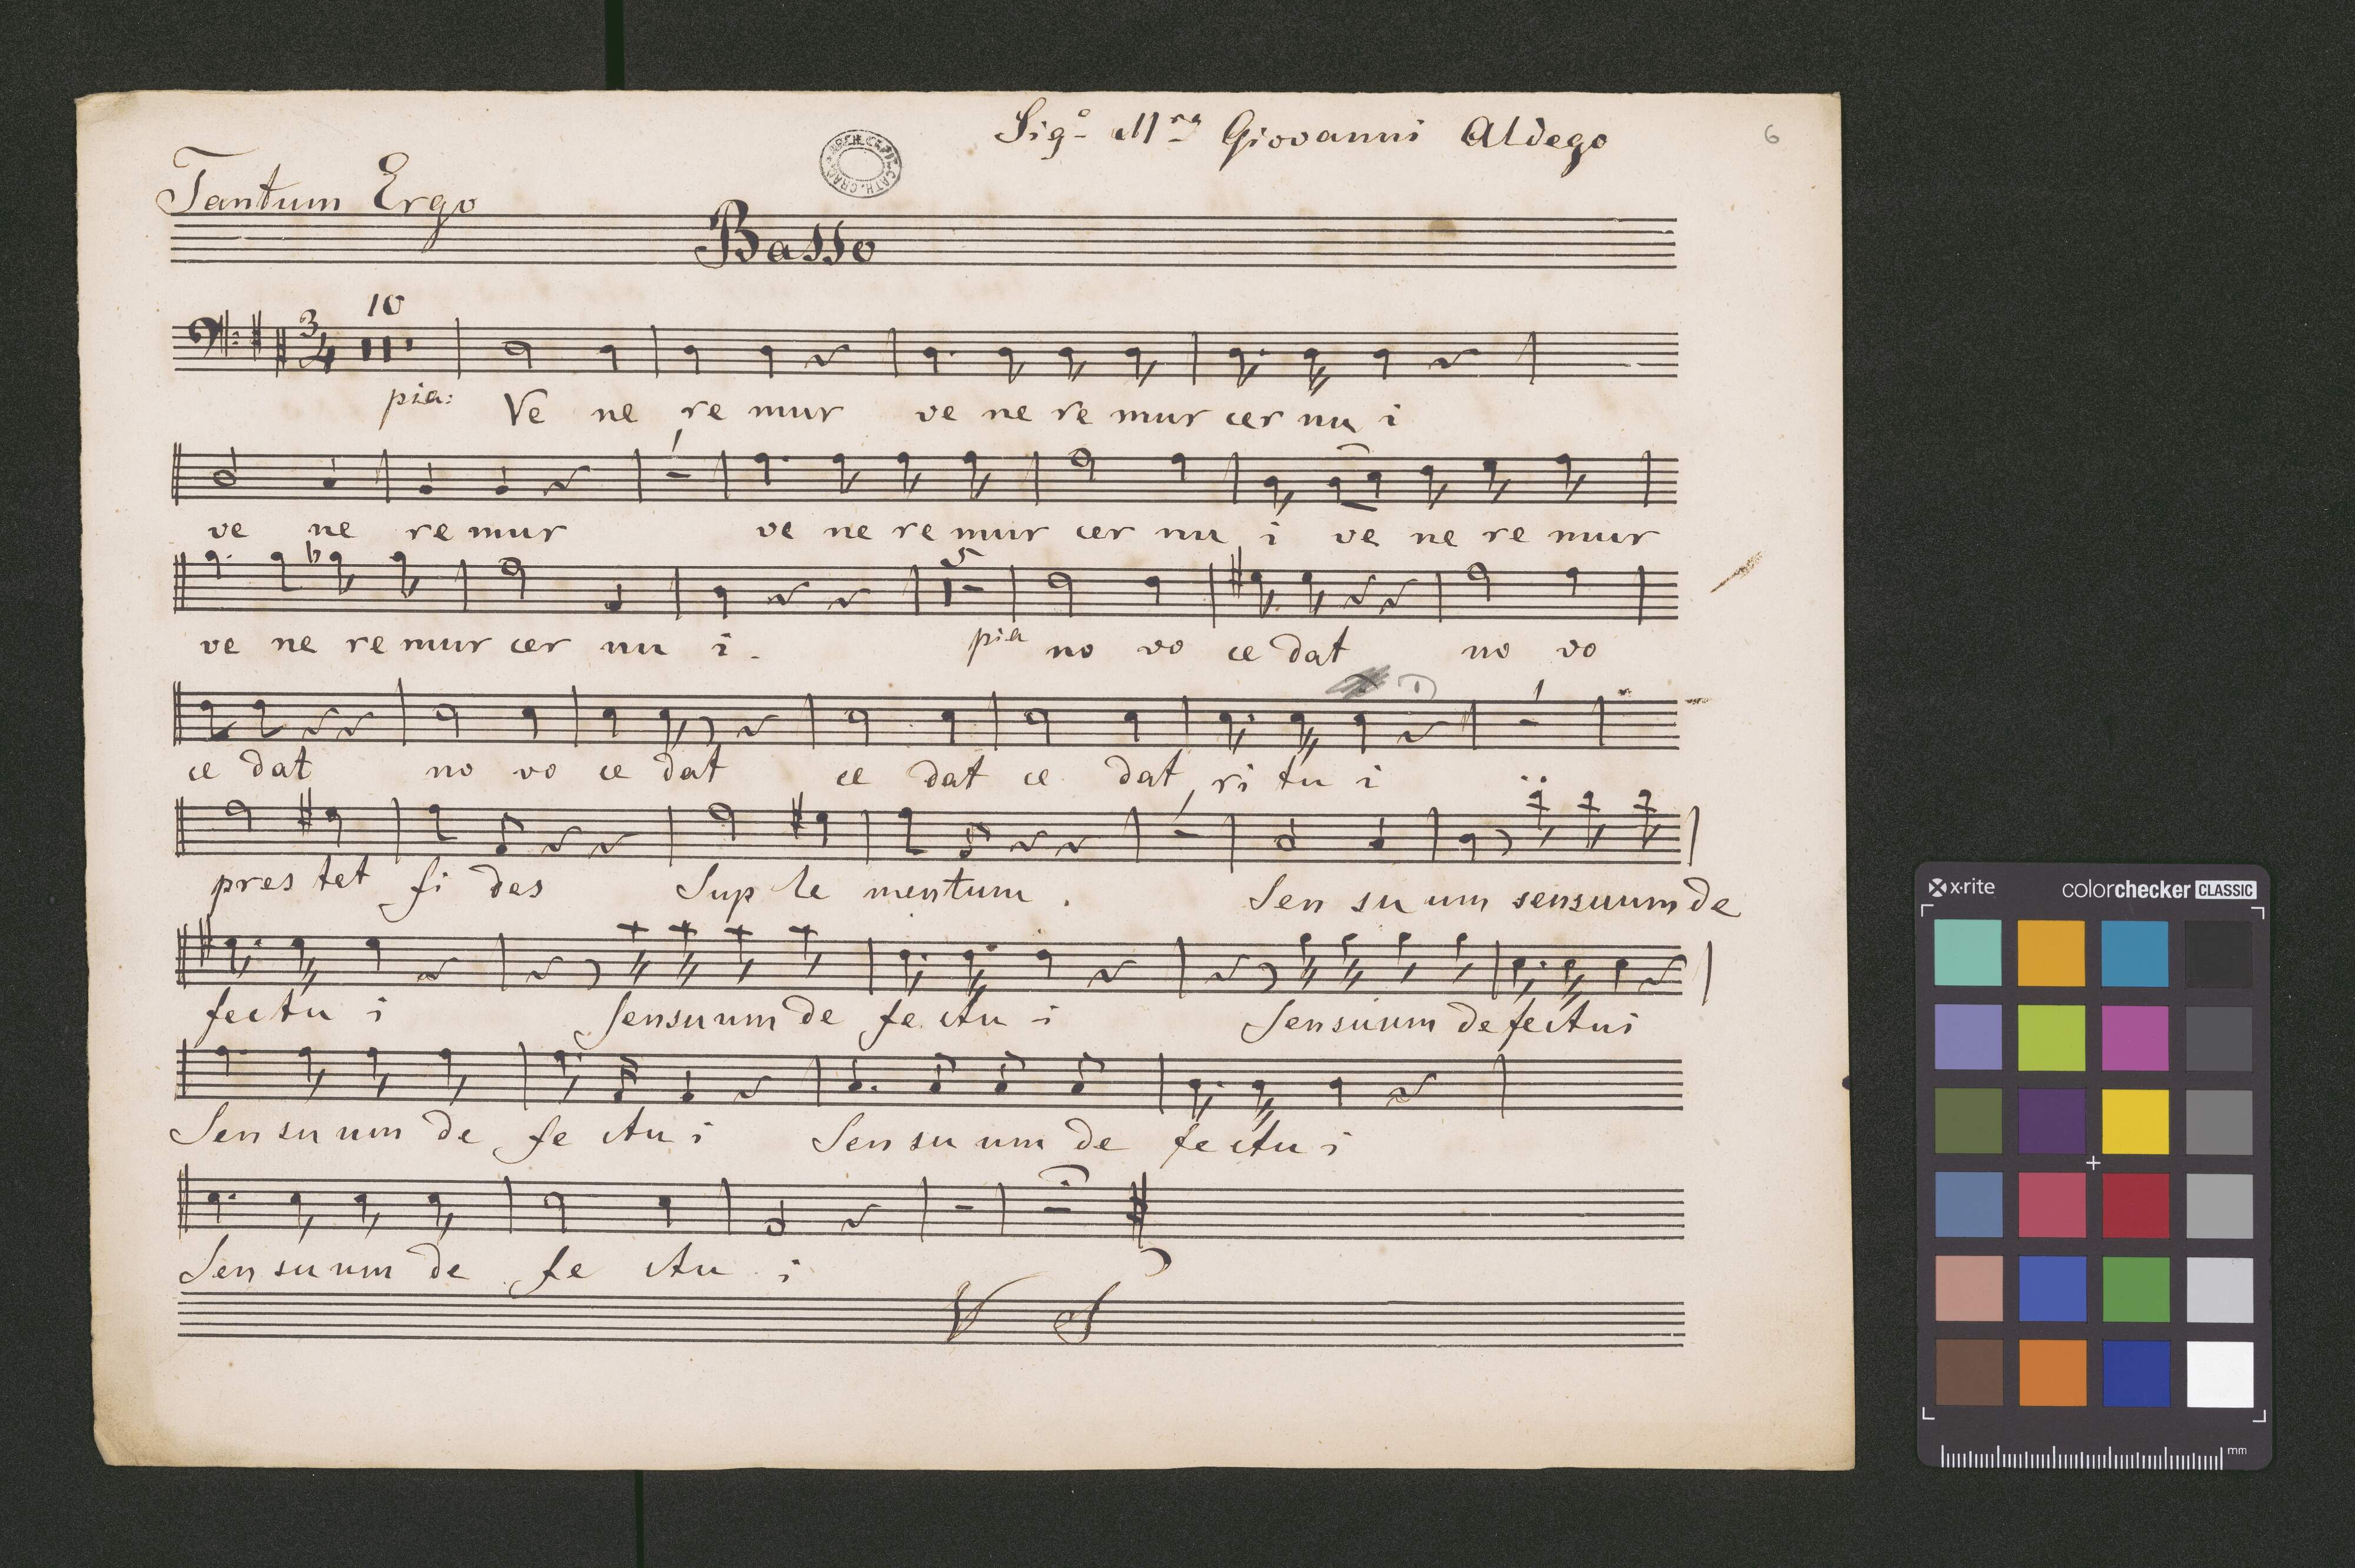 Sigº Mro Giovanni Aldego
6
ARCH. CAPIT. CATH. CRAC.
Tantum Ergo
Basso
10
3/4
pia: Ve ne re mur ve ne re mur cer nu i
1
ve ne re mur ve ne re mur cer nu i ve ne re mur
5
ve ne re mur cer nu i. pia no vo ce dat no vo
1
ce dat no vo ce dat ce dat ce dat ri tu i
1
pres tet fi des Sup le mentum. Sen su um sensuum de
fectu i Sensuum de fe ctu i Sensuum defectui
Sen su um de fe ctu i Sen su um de fe ctu i
Sen su um de fe ctu i
V S
x-rite colorchecker CLASSIC
mm